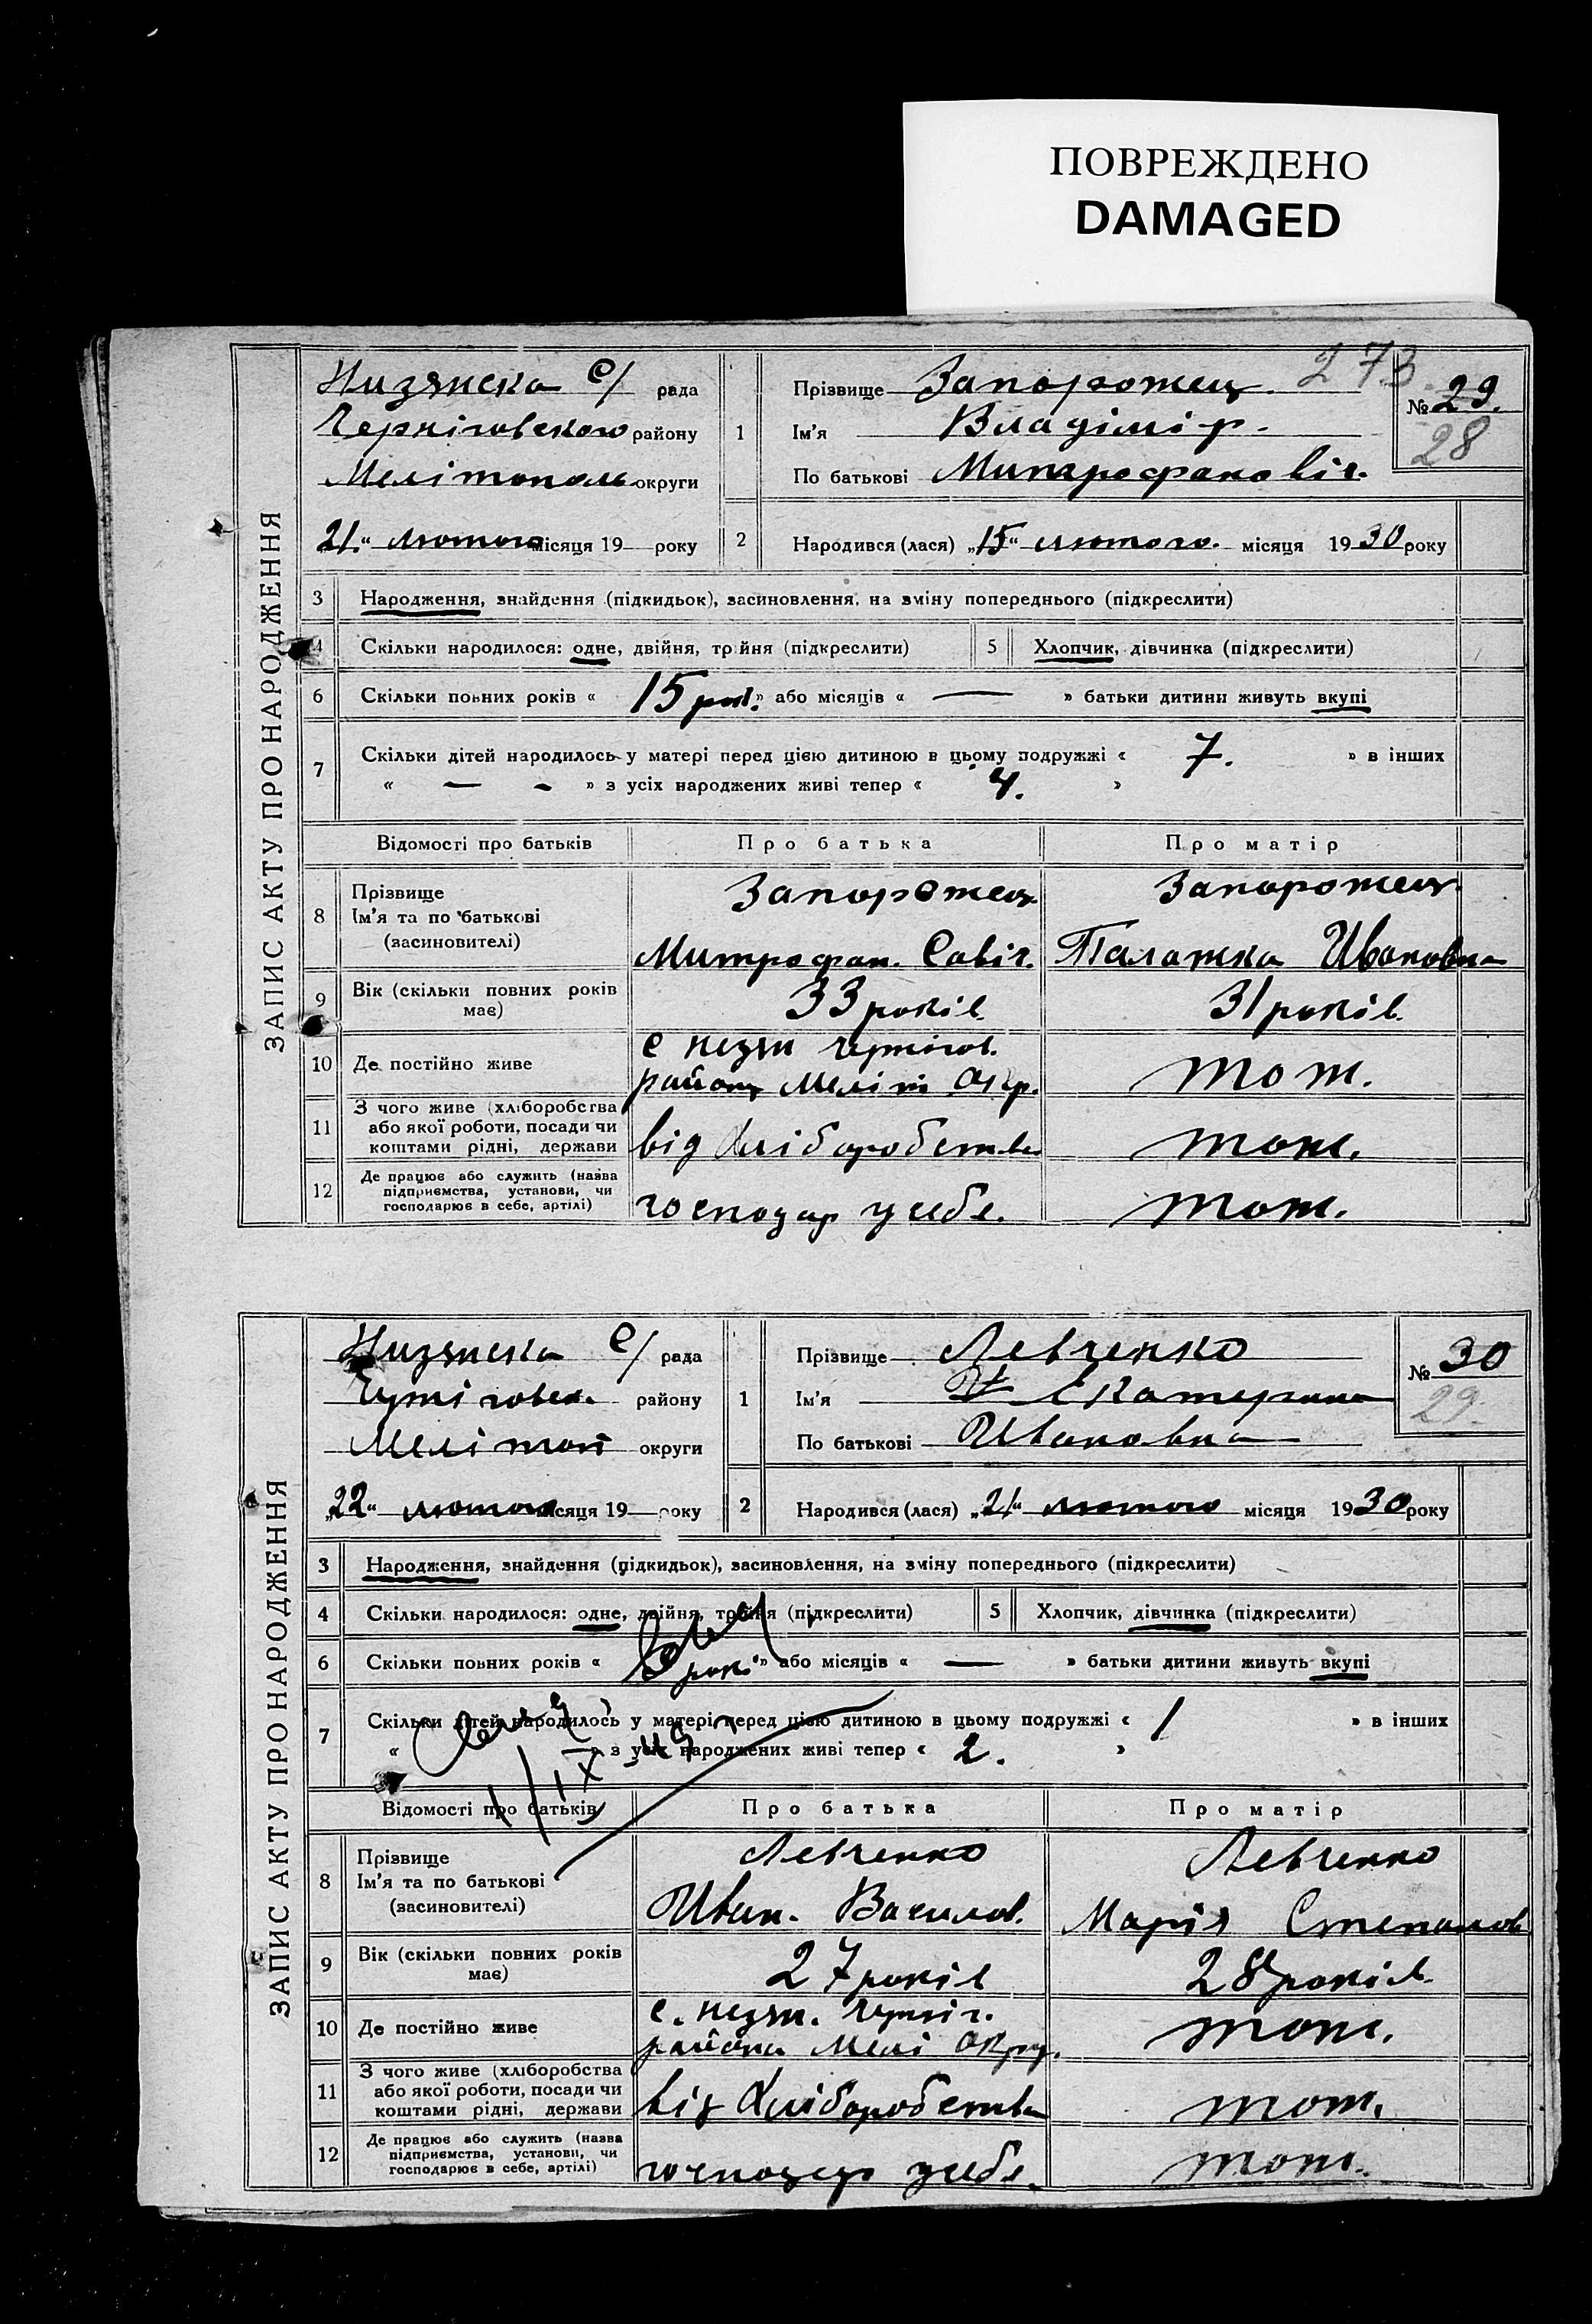 ПОВРЕЖДЕНО
DAMAGED
273
ЗАПИС АКТУ ПРО НАРОДЖЕННЯ
Низянска с/ рада
Чернігавского району
Мелітополь округи
„21“ лютого місяця 19 року
1 Прізвище Запорожец
Ім'я Владімір.
По батькові Митрофановіч.
№ 29.
28
2 Народився (лася) „15“ лютого. місяця 1930 року
3 Народження, знайдення (підкидьок), засиновлення, на зміну попереднього (підкреслити)
4 Скільки народилося: одне, двійня, трійня (підкреслити) 5 Хлопчик, дівчинка (підкреслити)
6 Скільки повних років « 15 рок. » або місяців « — » батьки дитини живуть вкупі
7 Скільки дітей народилось у матері перед цією дитиною в цьому подружжі « 7. » в інших
« — - » з усіх народжених живі тепер « 4. »
Відомості про батьків Про батька Про матір
8 Прізвище
Ім'я та по батькові
(засиновителі)
Запорожец
Митрофан. Савіч.
Запорожец
Палажка Ивановна
9 Вік (скільки повних років має)
33 років.
31 років.
10 Де постійно живе
с низян чернігов.
району Меліт Окр.
тож.
11 З чого живе (хліборобства
або якої роботи, посади чи
коштами рідні, держави
від Хліборобства
тож.
12 Де працює або служить (назва
підприємства, установи, чи
господарює в себе, артілі)
господар у себе.
тож.
ЗАПИС АКТУ ПРО НАРОДЖЕННЯ
Низянска с/ рада
Черніговск. району
Мелітоп округи
„22“ лютого місяця 19 року
1 Прізвище Левченко
Ім'я Екатерина
По батькові Ивановна
№ 30
29.
2 Народився (лася) „21“ лютого місяця 1930 року
3 Народження, знайдення (підкидьок), засиновлення, на зміну попереднього (підкреслити)
4 Скільки народилося: одне, двійня, трійня (підкреслити) 5 Хлопчик, дівчинка (підкреслити)
6 Скільки повних років « рокі » або місяців « — » батьки дитини живуть вкупі
7 Скільки дітей народилось у матері перед цією дитиною в цьому подружжі « 1 » в інших
« » з усіх народжених живі тепер « 2. »
1/IX-49
Відомості про батьків Про батька Про матір
8 Прізвище
Ім'я та по батькові
(засиновителі)
Левченко
Иван. Васильов.
Левченко
Марія Степанов
9 Вік (скільки повних років має)
27 років
28 років.
10 Де постійно живе
с. низян. Черніг.
района Мелі Окру.
тож.
11 З чого живе (хліборобства
або якої роботи, посади чи
коштами рідні, держави
від Хліборобства
тож.
12 Де працює або служить (назва
підприємства, установи, чи
господарює в себе, артілі)
господар у себе.
тож.